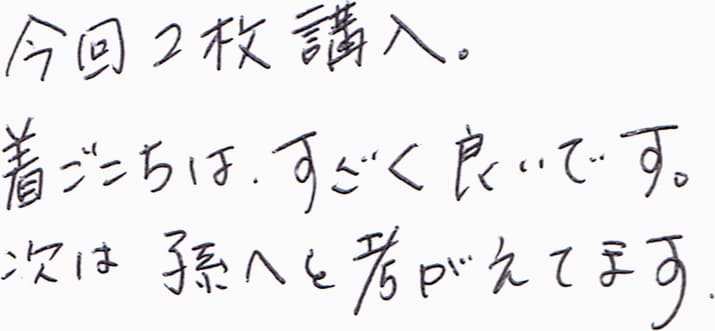 今回2枚講入。
着ごこちは、すごく良いです。
次は孫へと考がえてます.